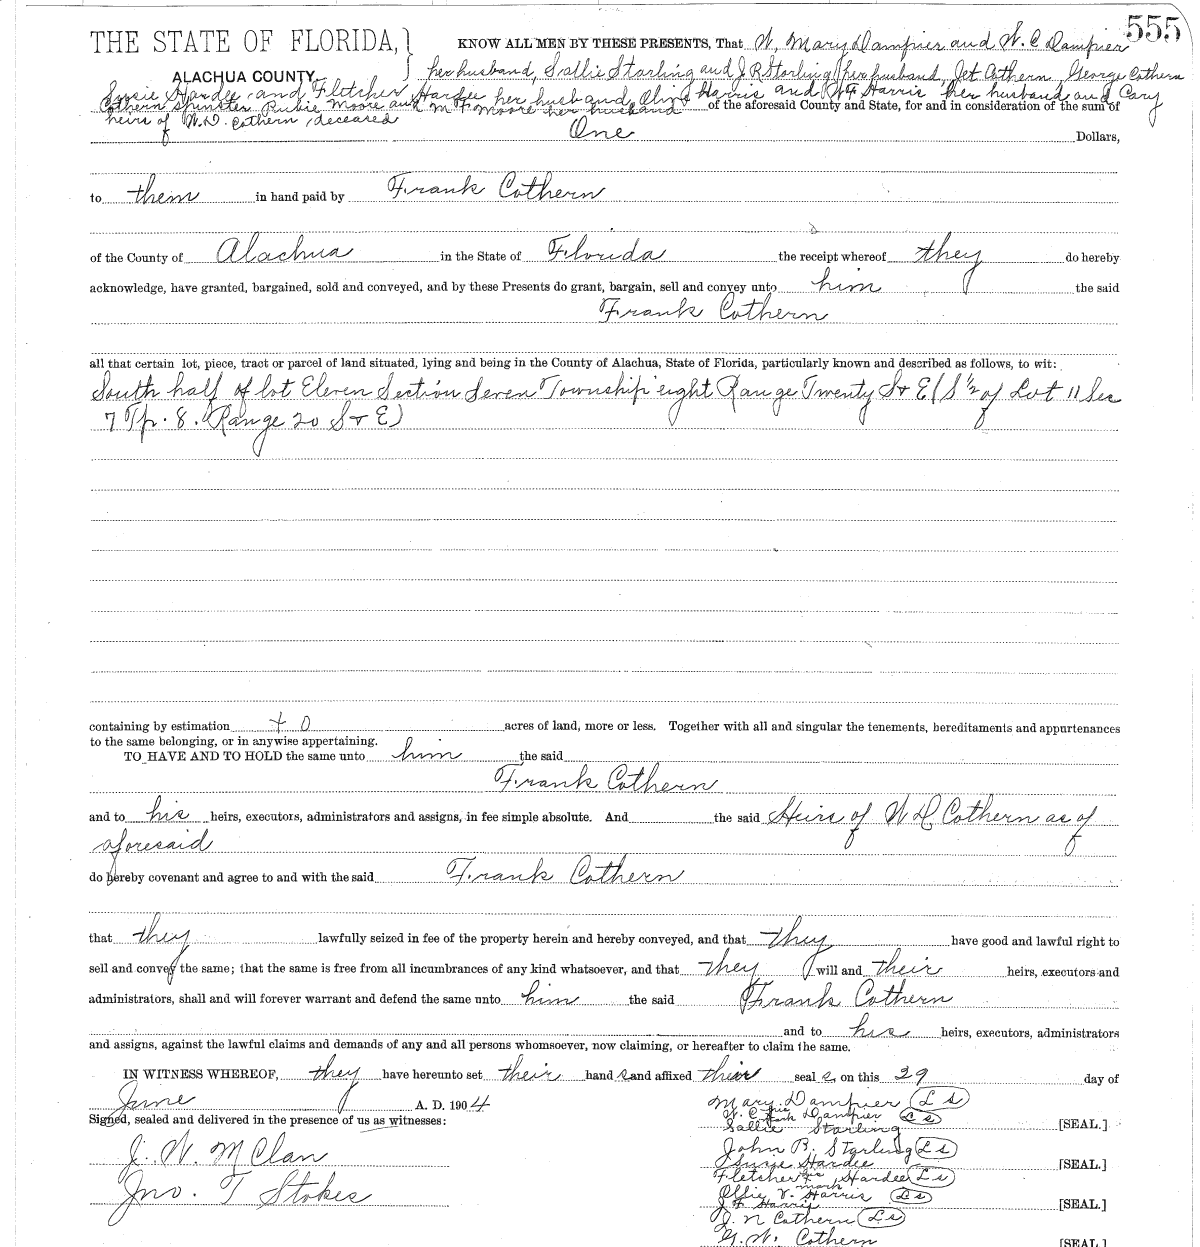 555
THE STATE OF FLORIDA,
ALACHUA COUNTY.
KNOW ALL MEN BY THESE PRESENTS, That W, Mary Dampier and W. C Dampier
her husband, Sallie Starling and J R Starling her husband, Jet Cothern, George Cothern
Susie Hardee and Fletcher Hardee her husband, Harris and Harris her husband and Cary
Cothern spinster Rubie Moore and M F Moore her husband of the aforesaid County and State, for and in consideration of the sum of
heirs of W. D. Cothern, deceased
One Dollars,
to them in hand paid by Frank Cothern
of the County of Alachua in the State of Florida the receipt whereof they do hereby
acknowledge, have granted, bargained, sold and conveyed, and by these Presents do grant, bargain, sell and convey unto him the said
Frank Cothern
all that certain lot, piece, tract or parcel of land situated, lying and being in the County of Alachua, State of Florida, particularly known and described as follows, to wit:
South half of lot Eleven Section Seven Township eight Range Twenty S & E (S ½ of Lot 11 Sec
7 Tp. 8. Range 20 S & E)
containing by estimation acres of land, more or less. Together with all and singular the tenements, hereditaments and appurtenances
to the same belonging, or in anywise appertaining.
TO HAVE AND TO HOLD the same unto him the said
Frank Cothern
and to his heirs, executors, administrators and assigns, in fee simple absolute. And the said Heirs of W D Cothern as of
aforesaid
do hereby covenant and agree to and with the said Frank Cothern
that they lawfully seized in fee of the property herein and hereby conveyed, and that they have good and lawful right to
sell and convey the same; that the same is free from all incumbrances of any kind whatsoever, and that they will and their heirs, executors and
administrators, shall and will forever warrant and defend the same unto him the said Frank Cothern
and to his heirs, executors, administrators
and assigns, against the lawful claims and demands of any and all persons whomsoever, now claiming, or hereafter to claim the same.
IN WITNESS WHEREOF, they have hereunto set their hand s and affixed their seal s, on this 29 day of
June A. D. 1904
Signed, sealed and delivered in the presence of us as witnesses:
J. W. McClan
Jno. T Stokes
Mary Dampier (L s)
W. C his mark Dampier (L s)
Sallie Starling [SEAL.]
John B. Starling (L s)
Susie Hardee [SEAL.]
Fletcher his mark Hardee (L s)
Ollie V. Harris (L s)
Harris [SEAL.]
J. N Cothern (L s)
G. W. Cothern [SEAL.]